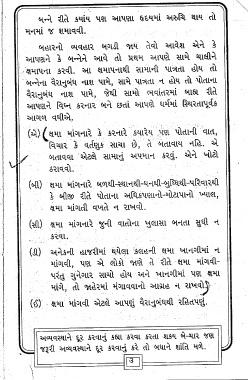 બન્ને રીતે કયાંય પણ આપણા હૃદયમાં અરુચિ થાય તો
મનમાં જ શમાવવી.
બહારનો વ્યવહાર બગડી જાય તેવો આવેશ એને કે
આપણને કે બન્નેને આવે તો પ્રથમ આપણે સામે ચાલીને
ક્ષમાપના કરવી. આ ક્ષમાપનાથી સામાની પાત્રતા હોય તો
બન્નેના વૈરાનુબંધ નાશ પામે, સામે પાત્રતા ન હોય તો પોતાના
વૈરાનુબંધ નાશ પામે, જેથી સામો ભવાંતરમાં બાહ્ય રીતે
આપણને વિઘ્ન કરનાર બને છતાં આપણે ધર્મમાં સ્થિરતાપૂર્વક
આગળ વધીએ.
(એ) ક્ષમા માંગનારે કે કરનારે કયારેય પણ પોતાની વાત,
વિચાર કે વર્તણૂક સાચા છે, તે બતાવાય નહિ. એ
બતાવવા એટલે સામાનું અપમાન કરવું. એને ખોટો
ઠરાવવો.
(બી) ક્ષમા માંગનારે બળથી-સ્થાનથી-ધનથી-બુધ્ધિથી-પરિવારથી
કે બીજી રીતે પોતાના અધિકપણાનો-મોટાપાનો ખ્યાલ,
ક્ષમા માંગતી વખતે ન રાખવો.
(સી) ક્ષમા માંગનારે જુની વાતોના ખુલાસા બનતા સુધી ન
કરવા.
(ડી) અનેકની હાજરીમાં થયેલા કલહની ક્ષમા ખાનગીમાં ન
માંગવી, પણ એ લોકો જાણે તે રીતે ક્ષમા માંગવી-
પરંતુ ગુનેગાર સાચો હોય અને ખાનગીમાં પણ ક્ષમા
માંગે, તો જાહેરમાં મંગાવવાનો આગ્રહ ન રાખવો.
(ઈ) ક્ષમા માંગવી એટલે આપણું વૈરાનુબંધથી રહિતપણું.
અવ્યવસ્થાને દૂર કરવાનું કહ્યા કરવા કરતા શકય બે-ચાર જણ
જરૂરી અવ્યવસ્થાને દૂર કરવાનું કરે તો બધાને શાંતિ મળે.
3